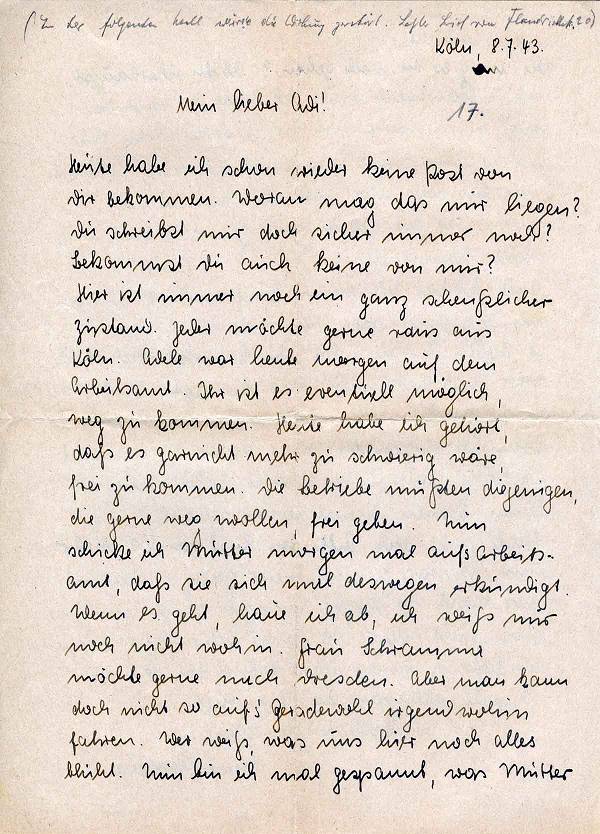 (In der folgenden Nacht wurde die Wohnung zerstört. Letzter Brief von Flandrischestr. 20)
Köln, 8.7.43.
Mein lieber Adi!
17.
Heute habe ich schon wieder keine Post von
Dir bekommen. Woran mag das nur liegen?
Du schreibst mir doch sicher immer noch?
Bekommst Du auch keine von mir?
Hier ist immer noch ein ganz scheußlicher
Zustand. Jeder möchte gerne raus aus
Köln. Adele war heute morgen auf dem
Arbeitsamt. Ihr ist es eventuell möglich,
weg zu kommen. Heute habe ich gehört,
daß es garnicht mehr zu schwierig wäre,
frei zu kommen. Die Betriebe müßten diejenigen,
die gerne weg wollen, frei geben. Nun
schicke ich Mutter morgen mal aufs Arbeits-
amt, daß sie sich mal deswegen erkundigt.
Wenn es geht, haue ich ab, ich weiß nur
noch nicht wohin. Frau Schramm
möchte gerne nach Dresden. Aber man kann
doch nicht so auf's Geradewohl irgendwohin
fahren. Wer weiß, was uns hier noch alles
blüht. Nun bin ich mal gespannt, was Mutter